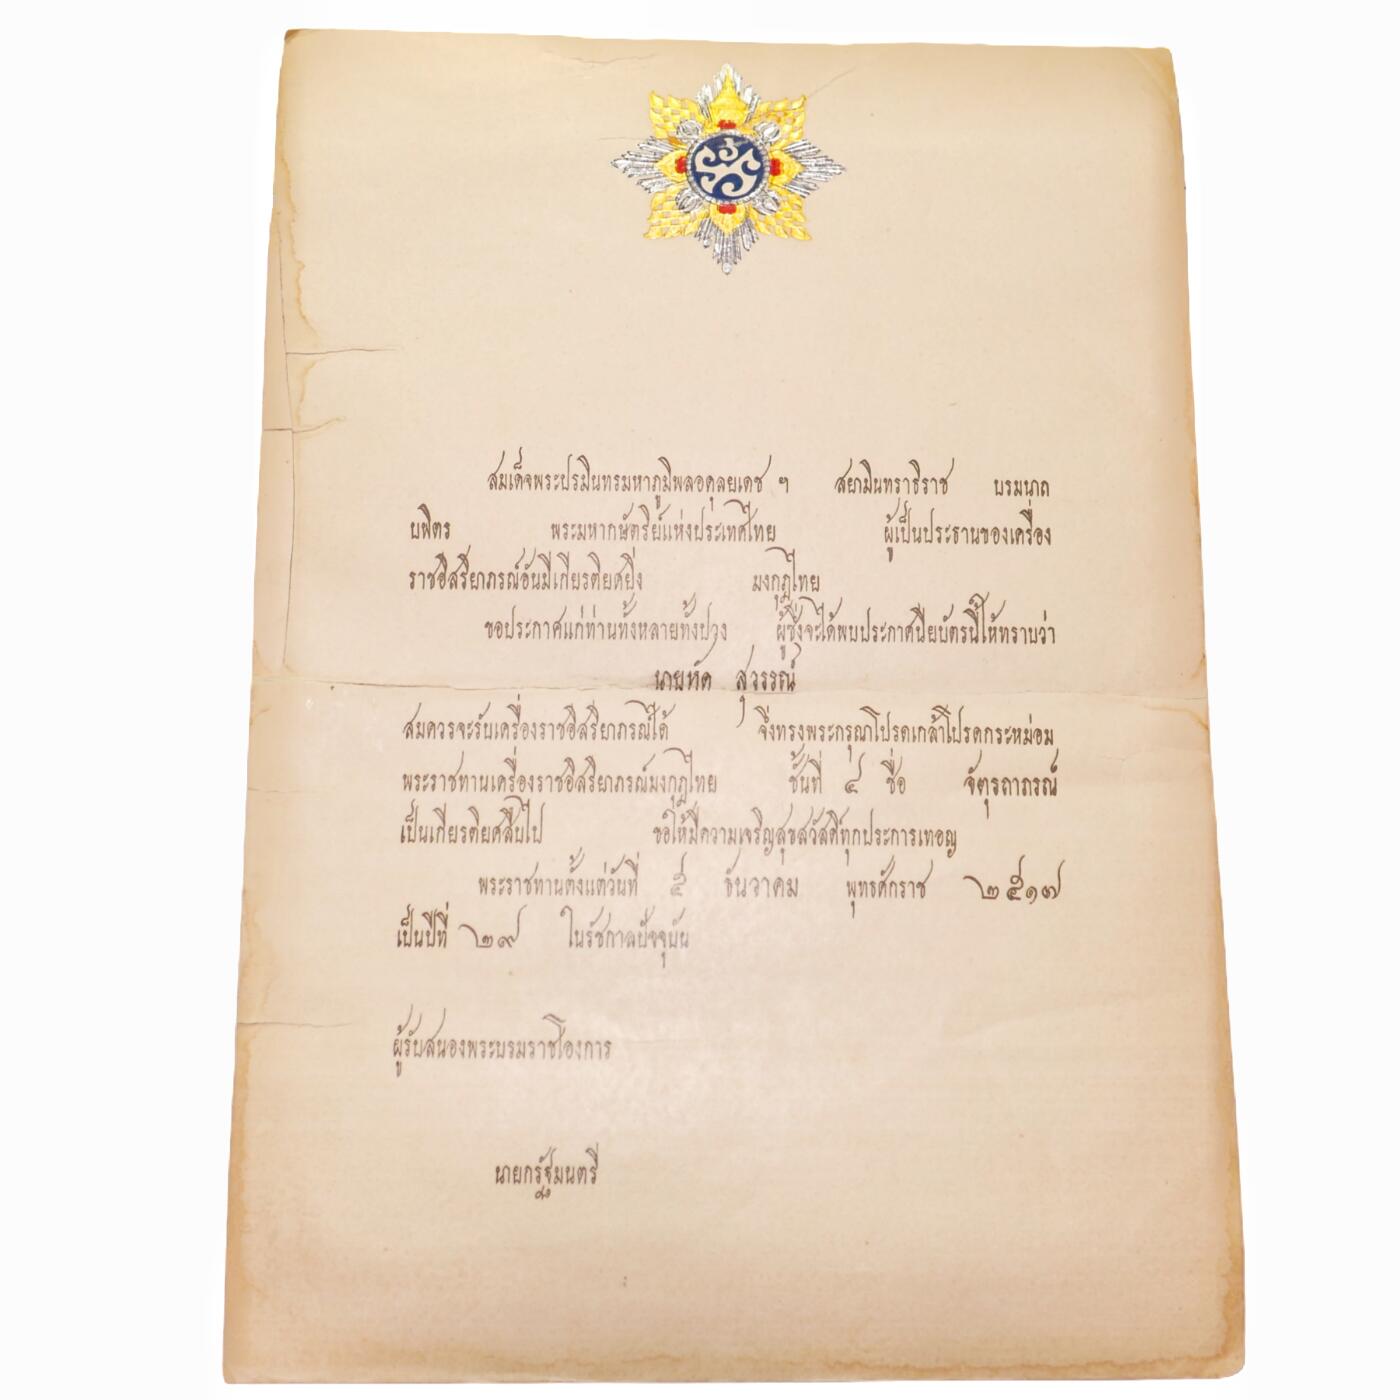 สมเด็จพระปรมินทรมหาภูมิพลอดุลยเดช ฯ สยามินทราธิราช บรมนาถ
บพิตร พระมหากษัตริย์แห่งประเทศไทย ผู้เป็นประธานของเครื่อง
ราชอิสริยาภรณ์อันมีเกียรติยศยิ่ง มงกุฎไทย
ขอประกาศแก่ท่านทั้งหลายทั้งปวง ผู้ซึ่งจะได้พบประกาศนียบัตรนี้ให้ทราบว่า
นายหัด สุวรรณ์
สมควรจะรับเครื่องราชอิสริยาภรณ์ได้ จึ่งทรงพระกรุณาโปรดเกล้าโปรดกระหม่อม
พระราชทานเครื่องราชอิสริยาภรณ์มงกุฎไทย ชั้นที่ ๔ ชื่อ จัตุรถาภรณ์
เป็นเกียรติยศสืบไป ขอให้มีความเจริญสุขสวัสดิ์ทุกประการเทอญ
พระราชทานตั้งแต่วันที่ ๕ ธันวาคม พุทธศักราช ๒๕๑๗
เป็นปีที่ ๒๙ ในรัชกาลปัจจุบัน
ผู้รับสนองพระบรมราชโองการ
นายกรัฐมนตรี